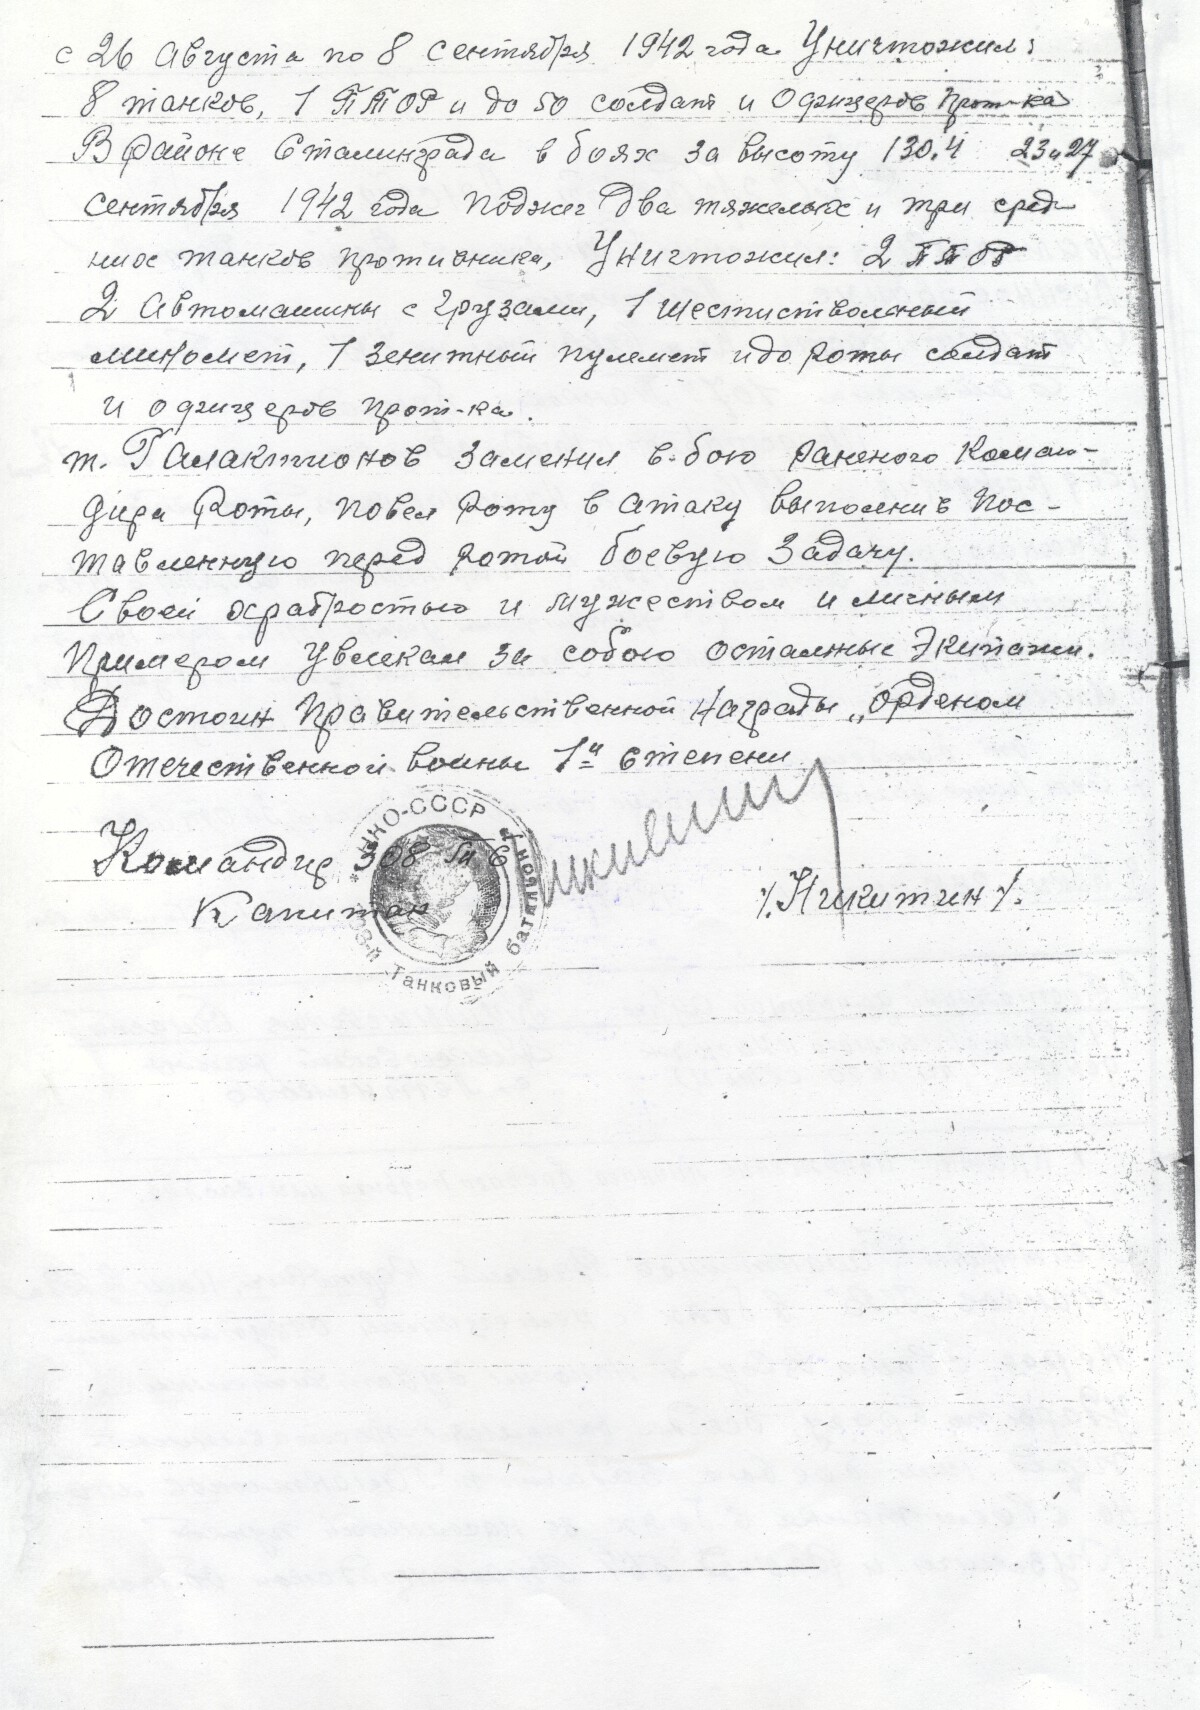 с 26 Августа по 8 сентября 1942 года Уничтожил:
8 танков, 1 ПТОР и до 50 солдат и Офицеров прот-ка
В районе Сталинграда в боях за высоту 130.4 23 и 27
сентября 1942 года поджег два тяжелых и три сред-
них танков противника, Уничтожил: 2 ПТОР
2 Автомашины с грузами, 1 шестиствольный
миномет, 1 зенитный пулемет и до Роты солдат
и офицеров прот-ка.
т. Галактионов заменил в бою раненого Коман-
дира Роты, повел Роту в атаку выполнив пос-
тавленную перед ротой боевую задачу.
Своей храбростью и мужеством и личным
Примером увлекал за собою остальные Экипажи.
Достоин Правительственной Награды „орденом
Отечественной воины 1й степени
Командир 308 ТБ
Капитан /. Никитин /.
НКО-СССР
308-й Танковый батальон